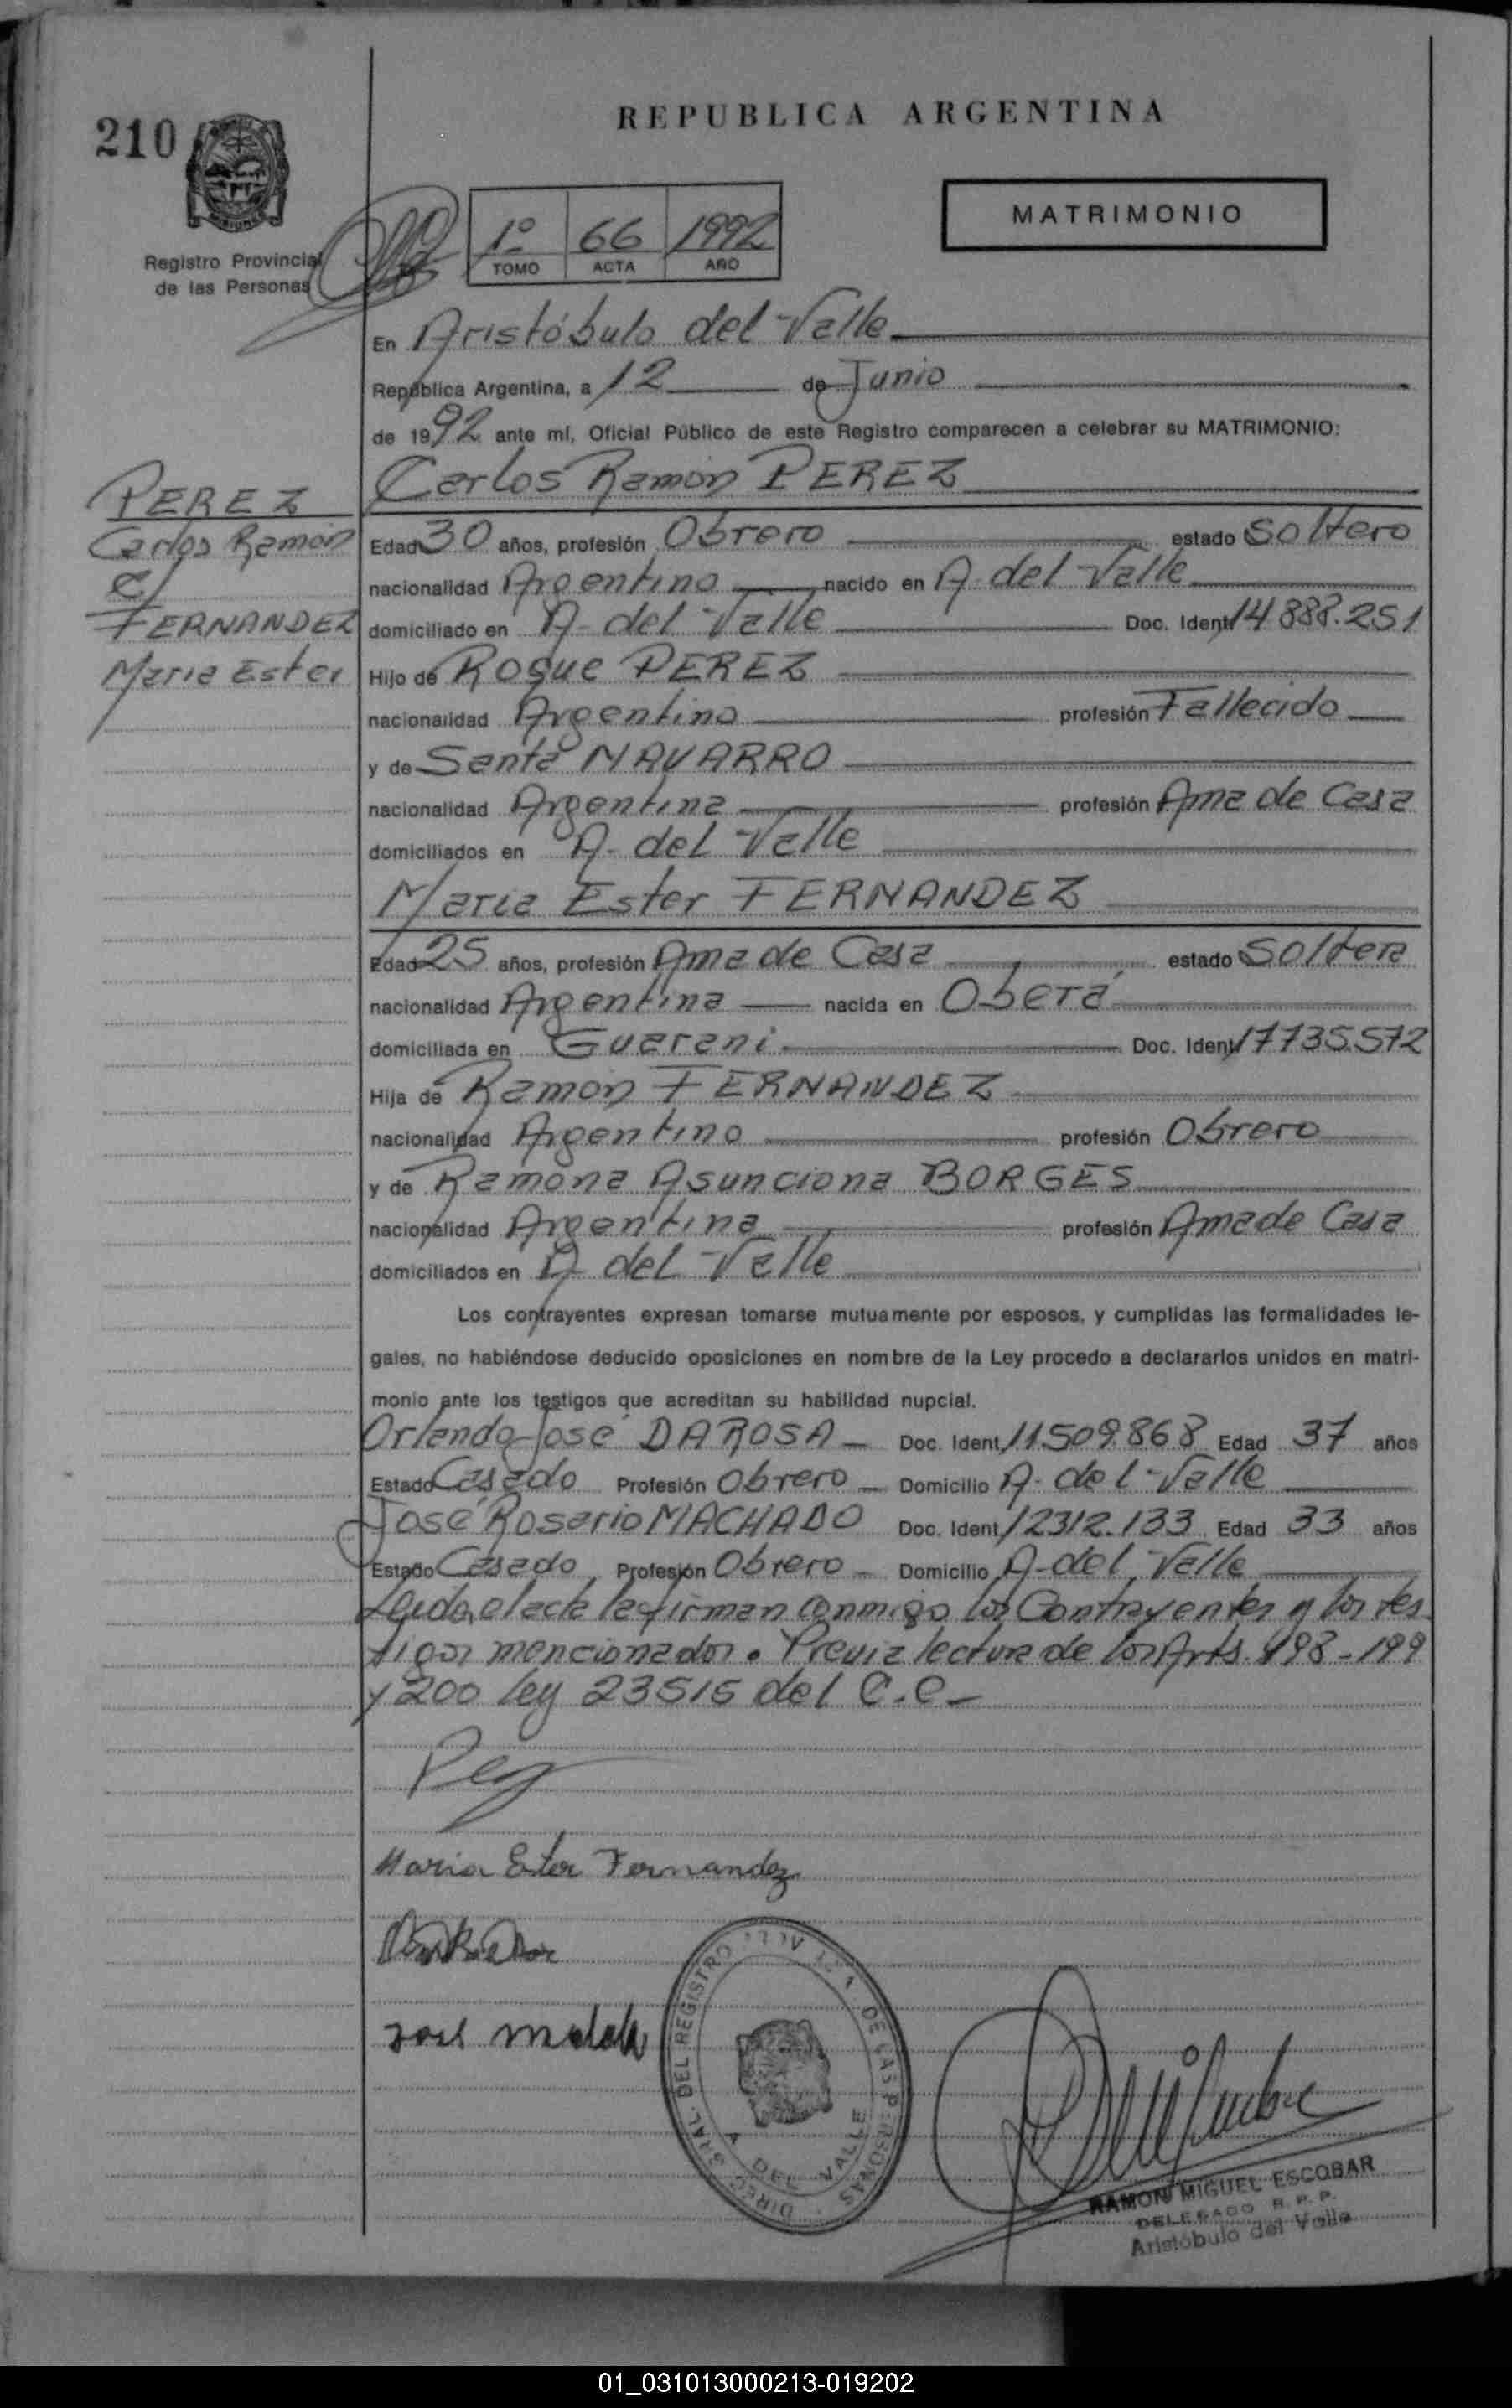 REPUBLICA ARGENTINA
210
MATRIMONIO
1º 66 1992
TOMO ACTA AÑO
Registro Provincial
de las Personas
En Aristóbulo del Valle
República Argentina, a 12 de Junio
de 1992 ante mí, Oficial Público de este Registro comparecen a celebrar su MATRIMONIO:
PEREZ
Carlos Ramón
C/
FERNANDEZ
Maria Ester
Carlos Ramón PEREZ
Edad 30 años, profesión Obrero estado Soltero
nacionalidad Argentino nacido en A. del Valle
domiciliado en A. del Valle Doc. Ident. 14.888.251
Hijo de Roque PEREZ
nacionalidad Argentino profesión Fallecido
y de Santa NAVARRO
nacionalidad Argentina profesión Ama de Casa
domiciliados en A. del Valle
Maria Ester FERNANDEZ
Edad 25 años, profesión Ama de Casa estado Soltera
nacionalidad Argentina nacida en Oberá
domiciliada en Guarani Doc. Ident. 17735.572
Hija de Ramón FERNANDEZ
nacionalidad Argentino profesión Obrero
y de Ramona Asunciona BORGES
nacionalidad Argentina profesión Ama de Casa
domiciliados en A. del Valle
Los contrayentes expresan tomarse mutuamente por esposos, y cumplidas las formalidades le-
gales, no habiéndose deducido oposiciones en nombre de la Ley procedo a declararlos unidos en matri-
monio ante los testigos que acreditan su habilidad nupcial.
Orlando José DAROSA Doc. Ident. 11.509.868 Edad 37 años
Estado Casado Profesión Obrero Domicilio A. del Valle
José Rosario MACHADO Doc. Ident. 12312.133 Edad 33 años
Estado Casado Profesión Obrero Domicilio A. del Valle
Leida el acta la firman conmigo los Contrayentes y los tes-
tigos mencionados. Previa lectura de los Arts. 198-199
y 200 ley 23515 del C.C.
Maria Ester Fernandez
DIREC. GRAL. DEL REGISTRO DE LAS PERSONAS
A. DEL VALLE
RAMON MIGUEL ESCOBAR
DELEGADO R. P. P.
Aristóbulo del Valle
01_031013000213-019202